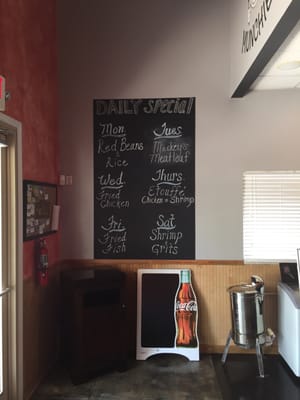 DAILY Special
Mon
Red Beans
Rice
Tues
Mackey's
Meatloaf
Wed
Fried
Chicken
Thurs
Etouffée
Chicken or Shrimp
Fri
Fried
Fish
Sat
Shrimp
Grits
Coca-Cola
MUNCHIE